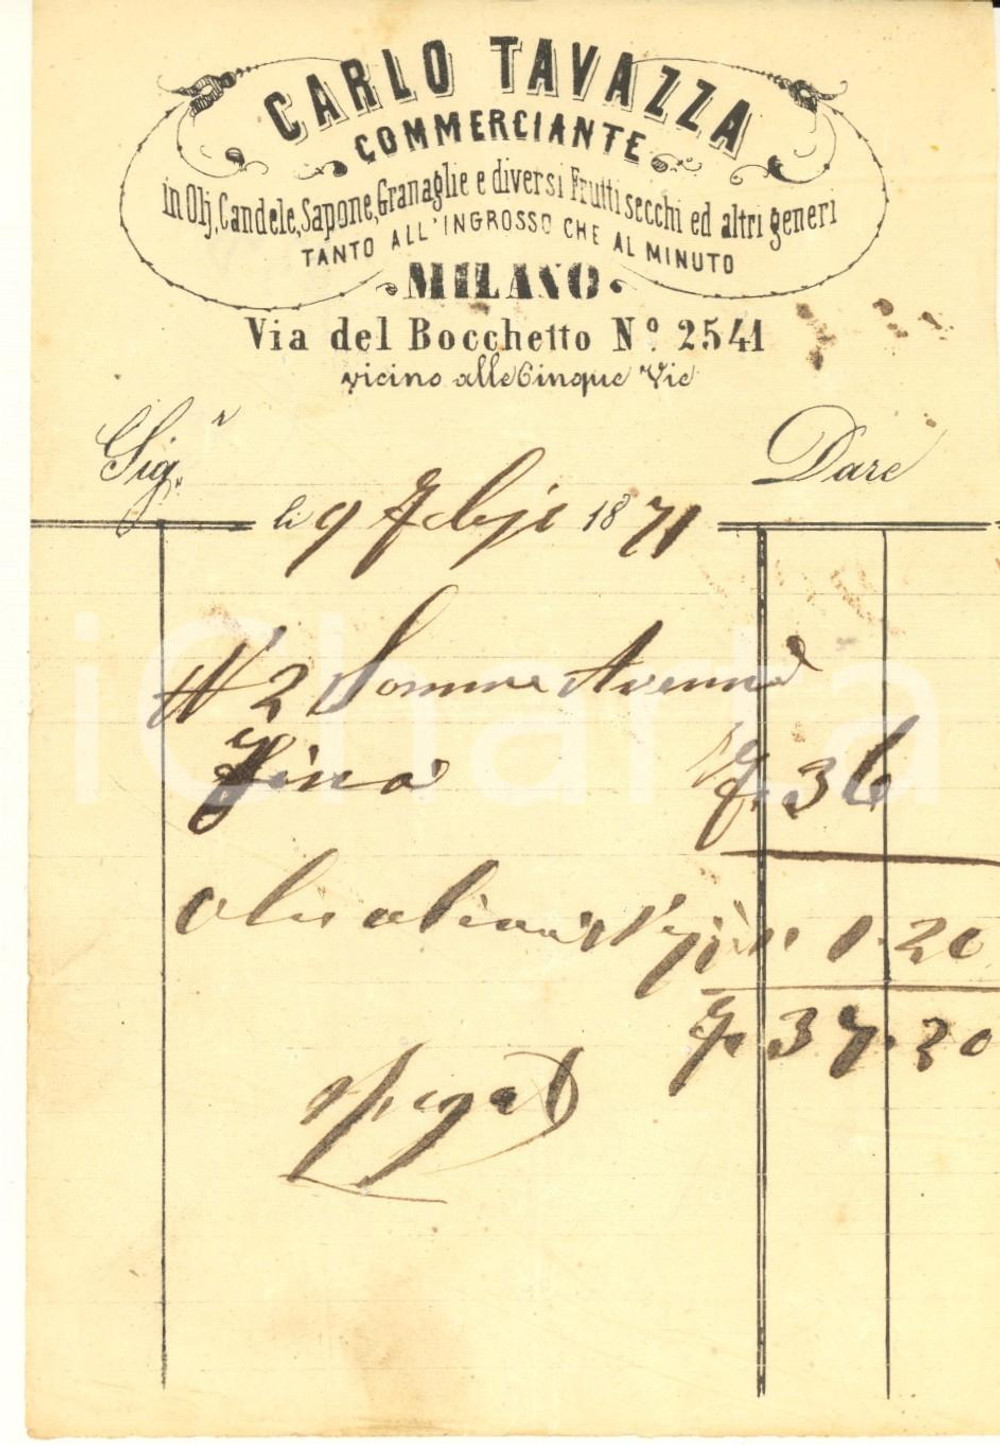 CARLO TAVAZZA
COMMERCIANTE
in Olj, Candele, Sapone, Granaglie e diversi Frutti secchi ed altri generi
TANTO ALL'INGROSSO CHE AL MINUTO
MILANO
Via del Bocchetto N.º 2541
vicino alle Cinque Vie
Sig.r Dare
li 9 1871
N 2 Somme Avenna
fina f. 36
Olio oliva 1.20
f. 37.20
Pagat
iCharta